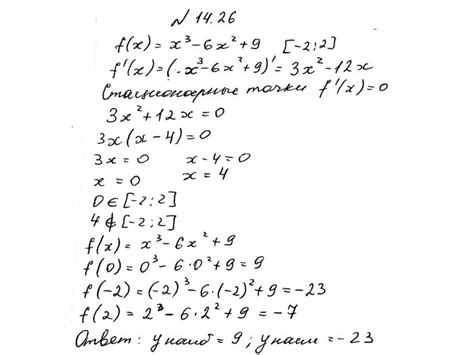 № 14.26
f(x) = x³-6x²+9 [-2;2]
f'(x) = (x³-6x²+9)' = 3x²-12x
Стационарные точки f'(x)=0
3x²+12x=0
3x(x-4)=0
3x=0 x-4=0
x=0 x=4
0∈[-2;2]
4∉[-2;2]
f(x)=x³-6x²+9
f(0)=0³-6·0²+9=9
f(-2)=(-2)³-6·(-2)²+9=-23
f(2)=2³-6·2²+9=-7
Ответ: y наиб=9; y наим=-23